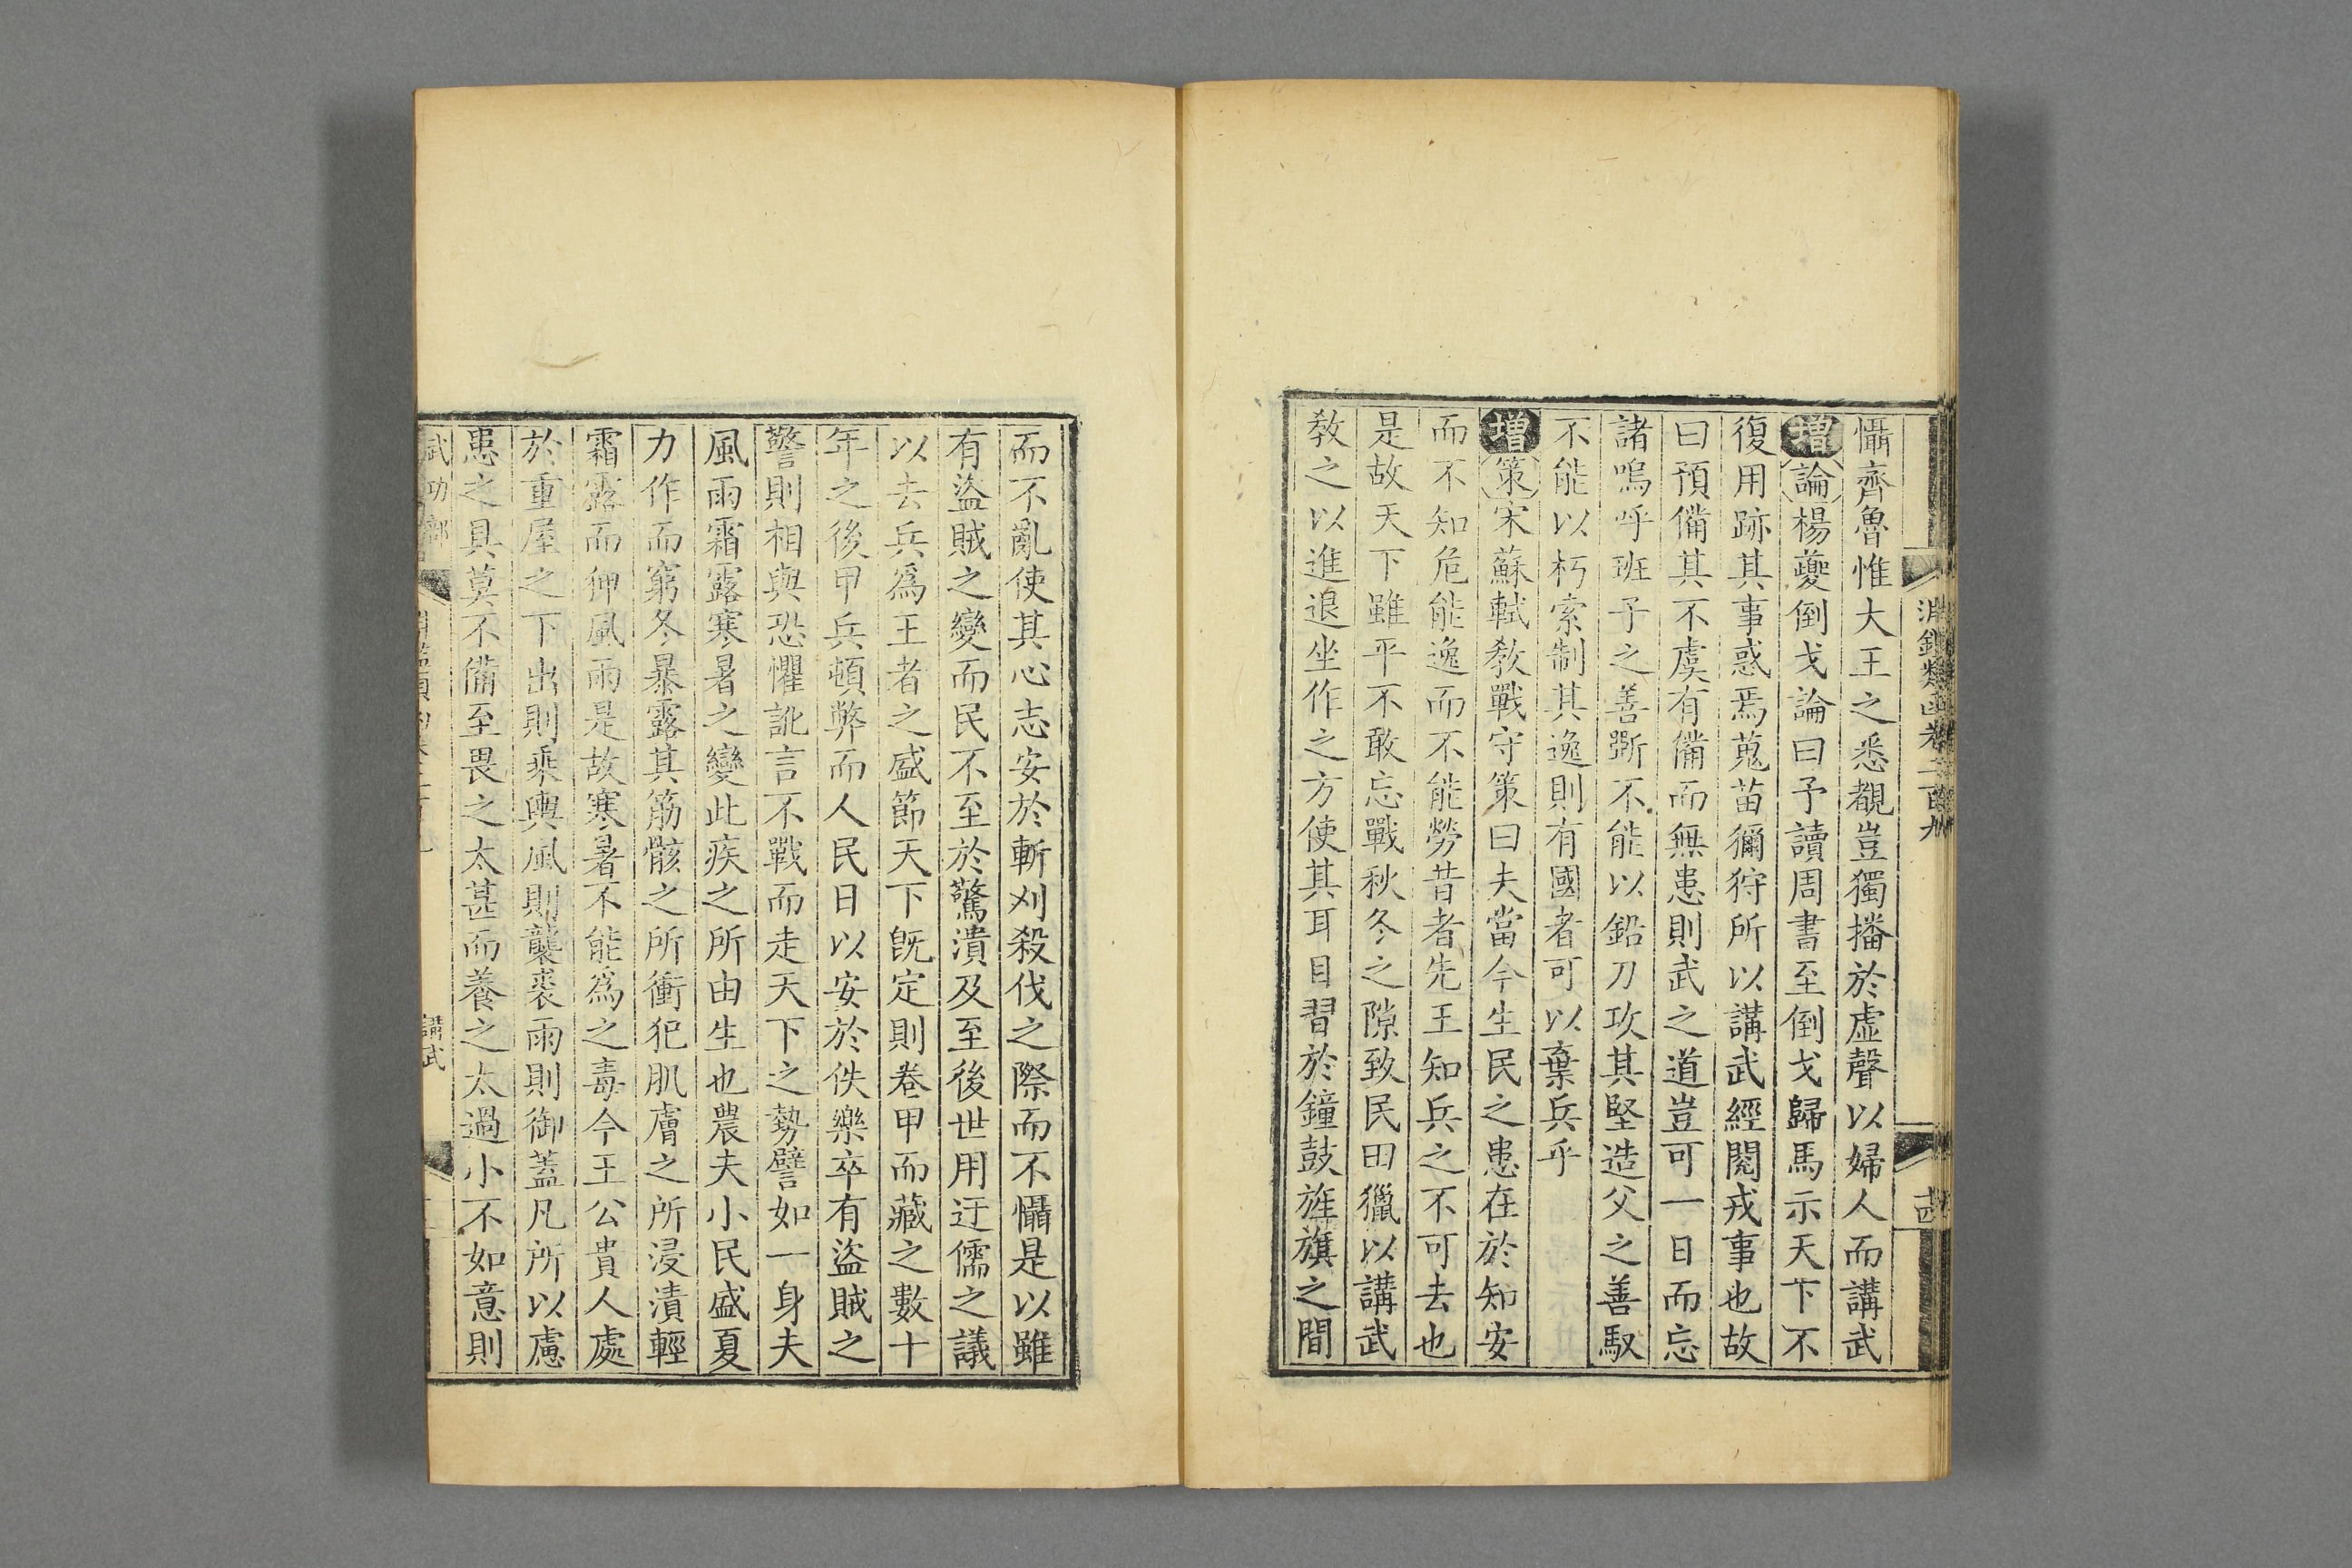 淵鑑類函卷二百九
十四
懾齊魯惟大王之悉觀豈獨播於虛聲以婦人而講武
增論楊夔倒戈論曰予讀周書至倒戈歸馬示天下不
復用跡其事惑焉蒐苗獮狩所以講武經閱戎事也故
曰預備其不虞有備而無患則武之道豈可一日而忘
諸嗚呼班子之善斲不能以鉛刀攻其堅造父之善馭
不能以朽索制其逸則有國者可以棄兵乎
增策宋蘇軾敎戰守策曰夫當今生民之患在於知安
而不知危能逸而不能勞昔者先王知兵之不可去也
是故天下雖平不敢忘戰秋冬之隙致民田獵以講武
敎之以進退坐作之方使其耳目習於鐘鼓旌旗之間
而不亂使其心志安於斬刈殺伐之際而不懾是以雖
有盜賊之變而民不至於驚潰及至後世用迂儒之議
以去兵爲王者之盛節天下旣定則卷甲而藏之數十
年之後甲兵頓弊而人民日以安於佚樂卒有盜賊之
警則相與恐懼訛言不戰而走天下之勢譬如一身夫
風雨霜露寒暑之變此疾之所由生也農夫小民盛夏
力作而窮冬暴露其筋骸之所衝犯肌膚之所浸漬輕
霜露而狎風雨是故寒暑不能爲之毒今王公貴人處
於重屋之下出則乘輿風則襲裘雨則御蓋凡所以慮
患之具莫不備至畏之太甚而養之太過小不如意則
武功部
講武